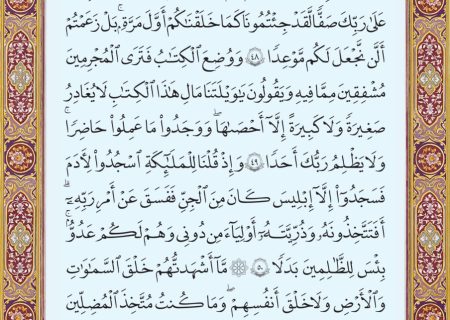 عَلَىٰ رَبِّكَ صَفًّا لَّقَدْ جِئْتُمُونَا كَمَا خَلَقْنَٰكُمْ أَوَّلَ مَرَّةٍۭ ۚ بَلْ زَعَمْتُمْ
أَلَّن نَّجْعَلَ لَكُم مَّوْعِدًا ٤٨ وَوُضِعَ ٱلْكِتَٰبُ فَتَرَى ٱلْمُجْرِمِينَ
مُشْفِقِينَ مِمَّا فِيهِ وَيَقُولُونَ يَٰوَيْلَتَنَا مَالِ هَٰذَا ٱلْكِتَٰبِ لَا يُغَادِرُ
صَغِيرَةً وَلَا كَبِيرَةً إِلَّآ أَحْصَىٰهَا ۚ وَوَجَدُوا۟ مَا عَمِلُوا۟ حَاضِرًا ۗ
وَلَا يَظْلِمُ رَبُّكَ أَحَدًا ٤٩ وَإِذْ قُلْنَا لِلْمَلَٰٓئِكَةِ ٱسْجُدُوا۟ لِءَادَمَ
فَسَجَدُوٓا۟ إِلَّآ إِبْلِيسَ كَانَ مِنَ ٱلْجِنِّ فَفَسَقَ عَنْ أَمْرِ رَبِّهِۦٓ ۗ
أَفَتَتَّخِذُونَهُۥ وَذُرِّيَّتَهُۥٓ أَوْلِيَآءَ مِن دُونِى وَهُمْ لَكُمْ عَدُوٌّۢ ۚ
بِئْسَ لِلظَّٰلِمِينَ بَدَلًا ٥٠ ۞ مَّآ أَشْهَدتُّهُمْ خَلْقَ ٱلسَّمَٰوَٰتِ
وَٱلْأَرْضِ وَلَا خَلْقَ أَنفُسِهِمْ وَمَا كُنتُ مُتَّخِذَ ٱلْمُضِلِّينَ